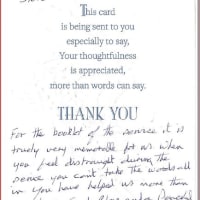 This card
is being sent to you
especially to say,
Your thoughtfulness
is appreciated,
more than words can say.
THANK YOU
For the booklet of the service it is
truely very memorable for us when
you feel distraught during the
service you can't take the words all
in you have helped us more than